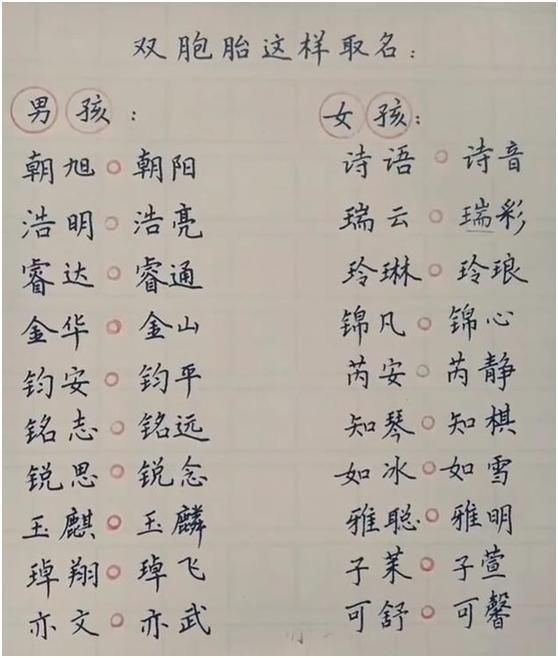 双胞胎这样取名：
男孩： 女孩：
朝旭。朝阳 诗语。诗音
浩明。浩亮 瑞云。瑞彩
睿达。睿通 玲琳。玲琅
金华。金山 锦凡。锦心
钧安。钧平 芮安。芮静
铭志。铭远 知琴。知棋
锐思。锐念 如冰。如雪
玉麒。玉麟 雅聪。雅明
琸翔。琸飞 子茉。子萱
亦文。亦武 可舒。可馨